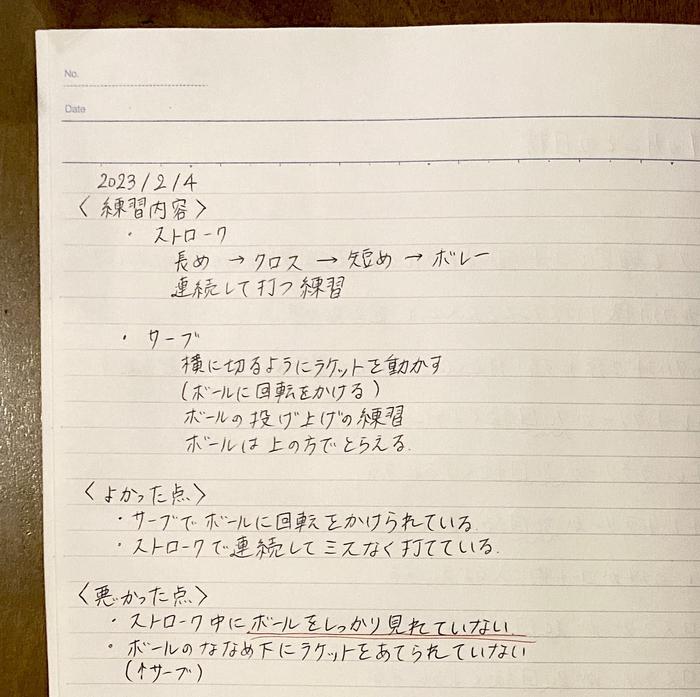 No.
Date
2023/2/4
〈練習内容〉
・ストローク
長め→クロス→短め→ボレー
連続して打つ練習
・サーブ
横に切るようにラケットを動かす
(ボールに回転をかける)
ボールの投げ上げの練習
ボールは上の方でとらえる.
〈よかった点〉
・サーブでボールに回転をかけられている.
・ストロークで連続してミスなく打てている.
〈悪かった点〉
・ストローク中にボールをしっかり見れていない.
・ボールのななめ下にラケットをあてられていない
(↑サーブ)